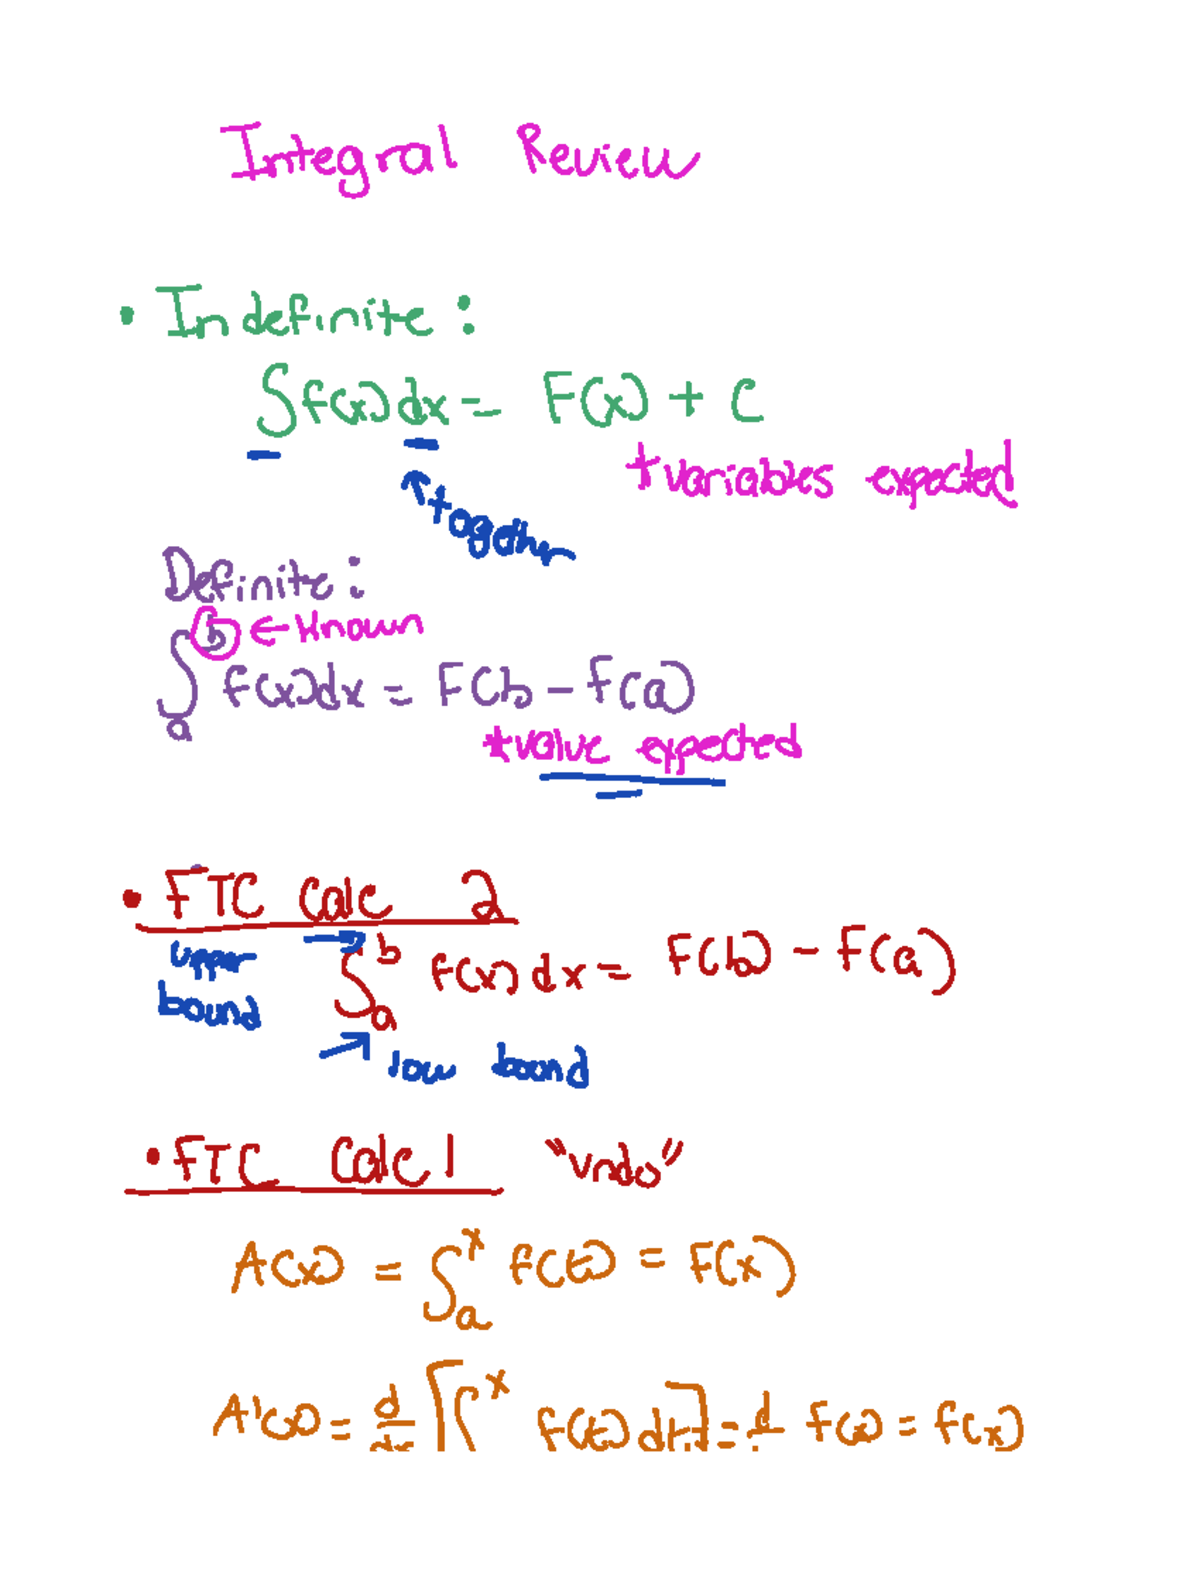 Integral Review
• Indefinite:
∫f(x)dx = F(x) + C
*variables expected
↑together
Definite:
b ← known
∫ₐᵇ f(x)dx = F(b - F(a)
*value expected
• FTC Calc 2
upper bound → ∫ₐᵇ f(x)dx = F(b) - F(a)
→ low bound
• FTC Calc 1 "undo"
A(x) = ∫ₐˣ f(t) = F(x)
A'(x) = d/dx [∫ˣ f(t)dt] = d F(x) = f(x)